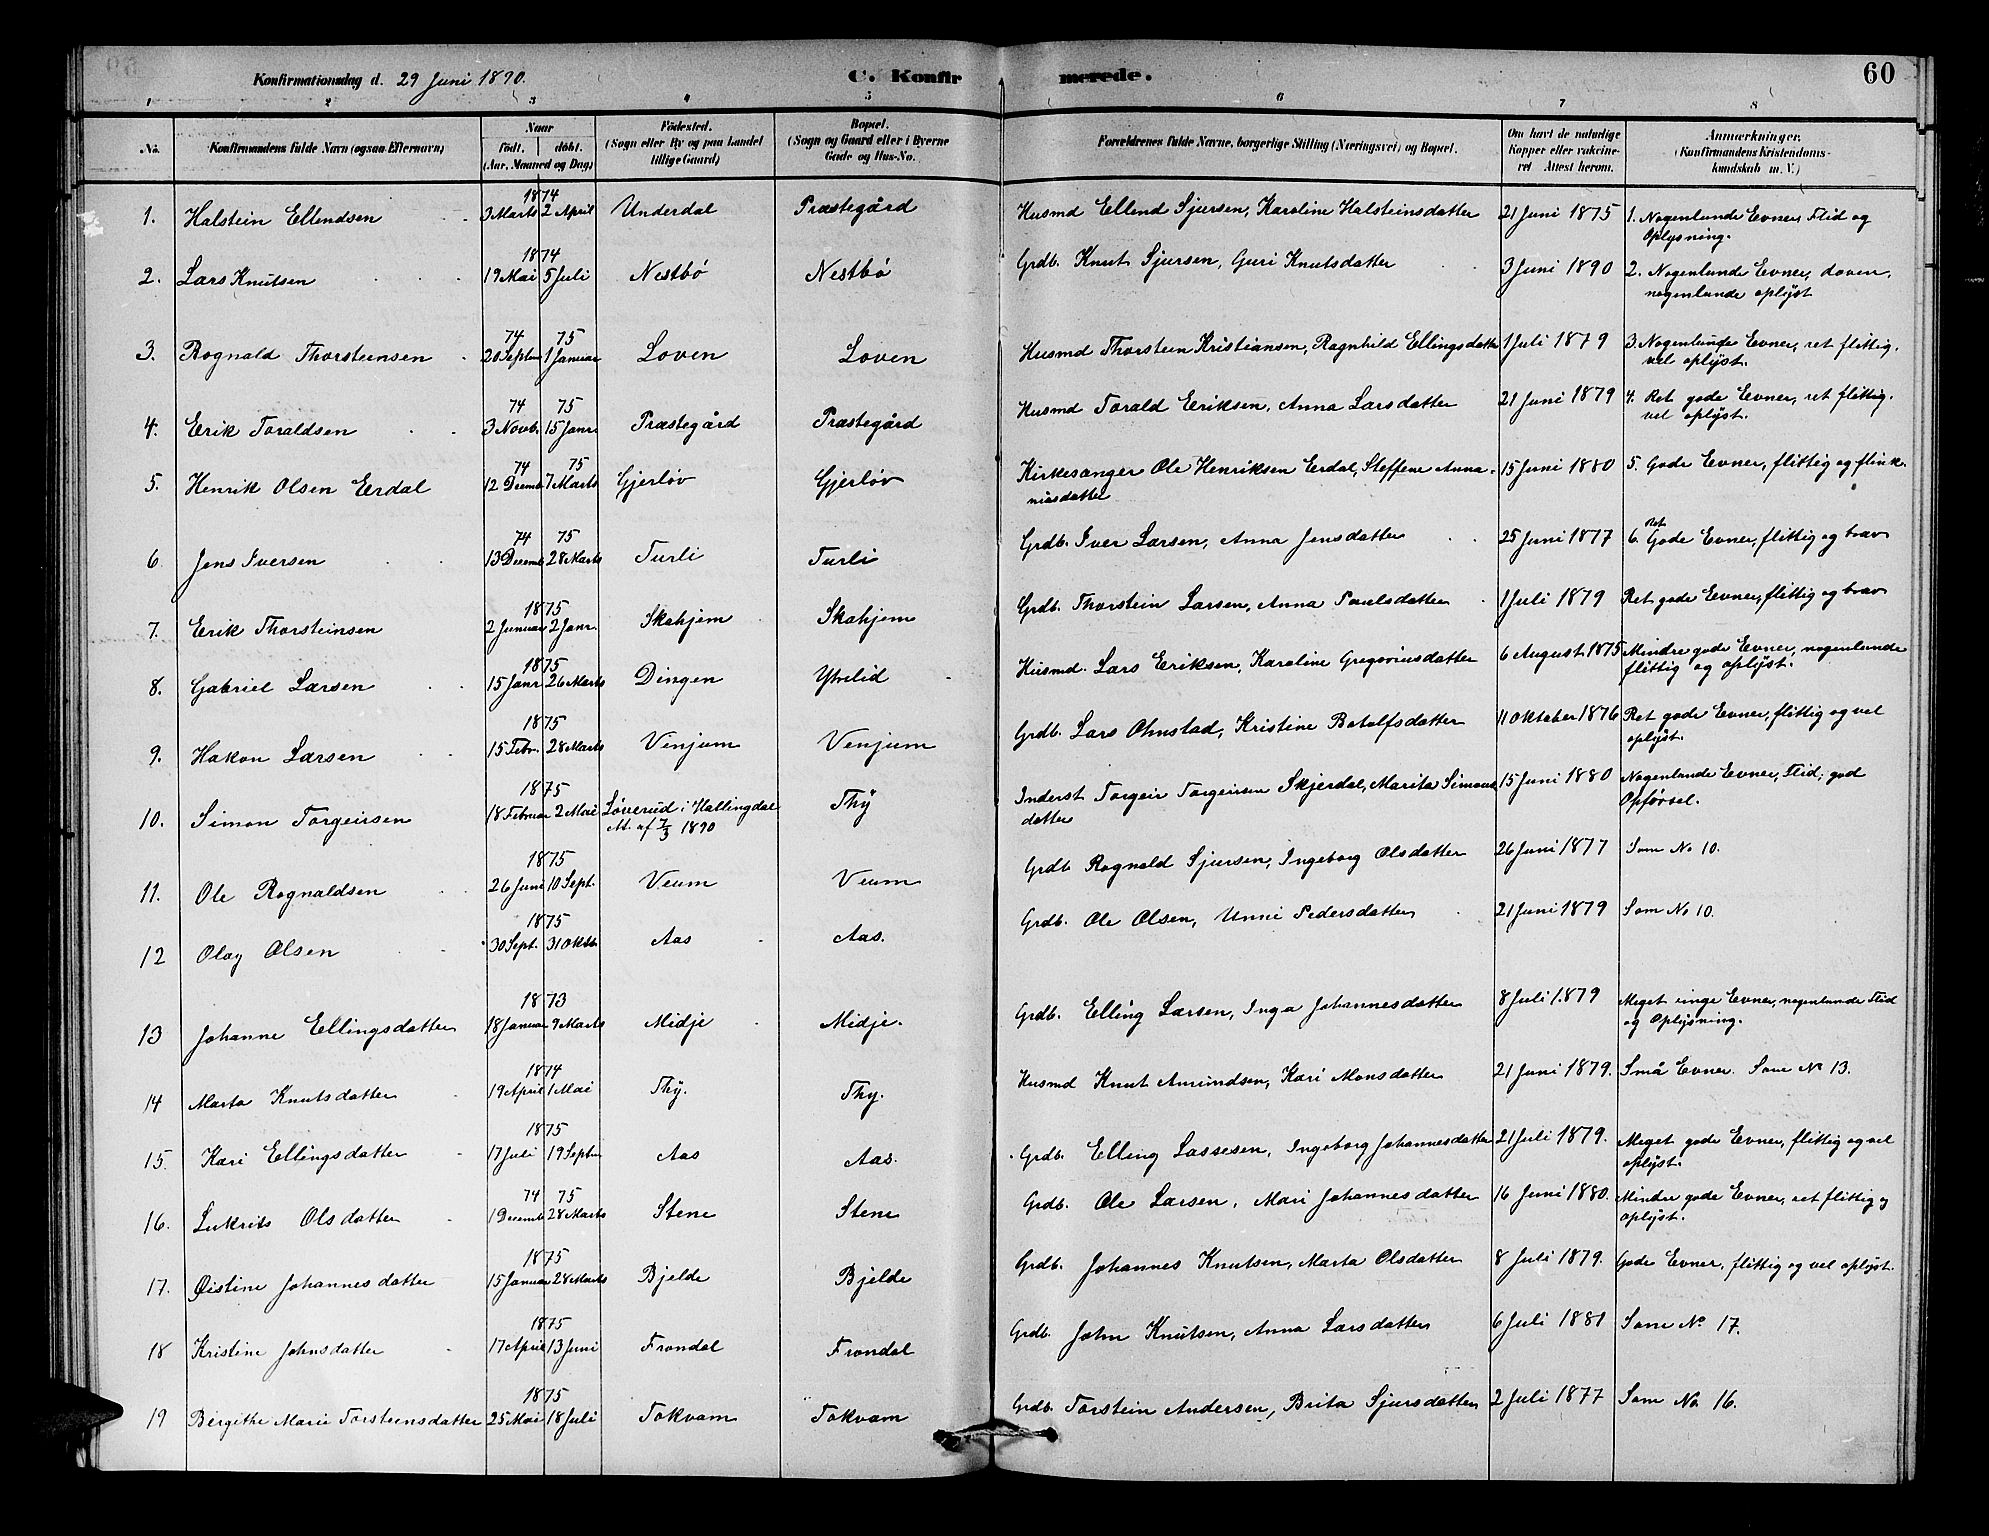 Konfirmationsdag d. 29 Juni 1890.
C. Konfirmerede.
60
1 2 3 4 5 6 7 8
No. Konfirmandens fulde Navn (ogsaa Efternavn) Naar Født. døbt. (Aar, Maaned og Dag) Fødested. (Sogn eller By og paa Landet tillige Gaard) Bopæl. (Sogn og Gaard eller i Byerne Gade og Hus-No. Forældrenes fulde Navne, borgerlige Stilling (Næringsvei) og Bopæl. Om havt de naturlige Kopper eller vakcineret Attest herom. Anmærkninger. (Konfirmandens Kristendomskundskab m. V.)
1874
1. Halstein Ellendsen 3 Marts 2 April Underdal Præstegård Husmd Ellend Sjursen, Karoline Halsteinsdatter 21 Juni 1875 1. Nogenlunde Evner, Flid og
Oplysning.
1874
2. Lars Knutsen 19 Mai 5 Juli Nestbø Nestbø Grdb. Knut Sjursen, Guri Knutsdatter 3 Juni 1890 2. Nogenlunde Evner, doven,
nogenlunde oplyst
74 75
3. Rognald Thorsteinsen 20 Septbr 1 Januar Loven Loven Husmd Thorstein Kristiansen, Ragnhild Ellingsdatter 1 Juli 1879 3. Nogenlunde Evner, ret flittig,
vel oplyst.
74 75
4. Erik Toraldsen 3 Novb. 15 Janr. Præstegård Præstegård Husmd Torald Eriksen, Anna Larsdatter 21 Juni 1879 4. Ret gode Evner, ret flittig,
vel oplyst.
74 75
5. Henrik Olsen Erdal 12 Decemb 7 Marts Gjerløv Gjerløv Kirkesanger Ole Henriksen Erdal, Steffene Anna- 15 Juni 1880 5. Gode Evner, flittig og flink.
niasdatter
74 75
6. Jens Iversen 13 Decemb 28 Marts Turli Turli Grdb. Iver Larsen, Anna Jensdatter 25 Juni 1877 6. Ret Gode Evner, flittig og brav
1875
7. Erik Thorsteinsen 2 Januar 2 Janr. Skahjem Skahjem Grdb. Thorstein Larsen, Anna Paulsdatter 1 Juli 1879 Ret gode Evner, flittig og brav
1875
8. Gabriel Larsen 15 Janr 26 Marts Dingen Ytrelid Husmd. Lars Eriksen, Karoline Gregoriusdatter 6 August 1875 Mindre gode Evner, nogenlunde
flittig og oplyst.
1875
9. Hakon Larsen 15 Febr. 28 Marts Venjum Venjum Grdb. Lars Ohnstad, Kristine Botolfsdatter 11 Oktober 1876 Ret gode Evner, flittig og vel
oplyst.
1875
10. Simon Torgeirsen 18 Februar 2 Mai Løverud i Hallingdal Thy Inderst Torgeir Torgeirsen Skjerdal, Marita Simons 15 Juni 1880 Nogenlunde Evner, Flid, god
M. af 7/3 1890 datter Opførsel.
1875
11. Ole Rognaldsen 26 Juni 10 Sept. Veum Veum Grdb Rognald Sjursen, Ingeborg Olsdatter 26 Juni 1877 Som No 10.
1875
12 Olav Olsen 30 Sept. 31 Oktb. Aas Aas. Grdb. Ole Olsen, Unni Pedersdatter 21 Juni 1879 Som No 10.
1873
13 Johanne Ellingsdatter 18 Januar 9 Marts Midje Midje. Grdb. Elling Larsen, Inga Johannesdatter 8 Juli 1879 Meget ringe Evner, nogenlunde Flid
og Oplysning.
1874
14 Marta Knutsdatter 19 April 1 Mai Thy. Thy. Husmd Knut Amundsen, Kari Monsdatter 21 Juni 1879. Små Evner. Som No 13.
1875
15. Kari Ellingsdatter 17 Juli 19 Septbr Aas Aas. Grdb. Elling Lassesen, Ingeborg Johannesdatter 21 Juli 1879. Meget gode Evner, flittig og vel
oplyst.
74 75
16. Lukrits Olsdatter 19 Decemb 28 Marts Stene Stene Grdb. Ole Larsen, Mari Johannesdatter 16 Juni 1880. Mindre gode Evner, ret flittig og
oplyst.
1875
17. Øistine Johannesdatter 15 Januar 28 Marts Bjelde Bjelde Grdb. Johannes Knutsen, Marta Olsdatter 8 Juli 1879. Gode Evner, flittig og vel oplyst.
1875
18 Kristine Johnsdatter 17 April 13 Juni Frondal Frondal Grdb. John Knutsen, Anna Larsdatter 6 Juli 1881 Som No. 17.
1875
19 Birgithe Marie Torsteinsdatter 25 Mai 18 Juli Tokvam Tokvam Grdb. Torstein Andersen, Brita Sjursdatter 2 Juli 1877 Som No. 16.